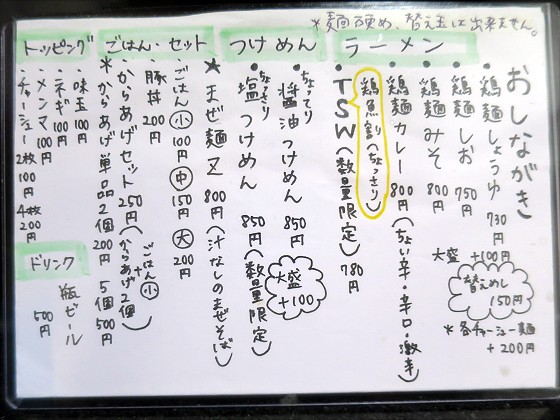 ＊麺硬め、替え玉は出来ません。
おしながき
ラーメン
・鶏麺しょうゆ 730円
・鶏麺しお 750円
・鶏麺みそ 800円
・鶏麺カレー 800円（ちょい辛・辛口・激辛）
鶏魚割（ちょっさり）
・TSW（数量限定） 780円
大盛 +100円
替えめし 150円
＊各チャーシュー麺 +200円
つけめん
・ちょてり 醤油つけめん 850円
・ちょさり 塩つけめん 850円（数量限定）
大盛 +100
★まぜ麺又 800円（汁なしのまぜそば）
ごはん・セット
・ごはん 小 100円 中 150円 大 200円
・豚丼 200円
・からあげセット 250円（ごはん小＋からあげ2個）
＊からあげ単品 2個 200円 5個 500円
トッピング
・味玉 100円
・ネギ 100円
・メンマ 100円
・チャーシュー 2枚 100円 4枚 200円
ドリンク
瓶ビール 500円